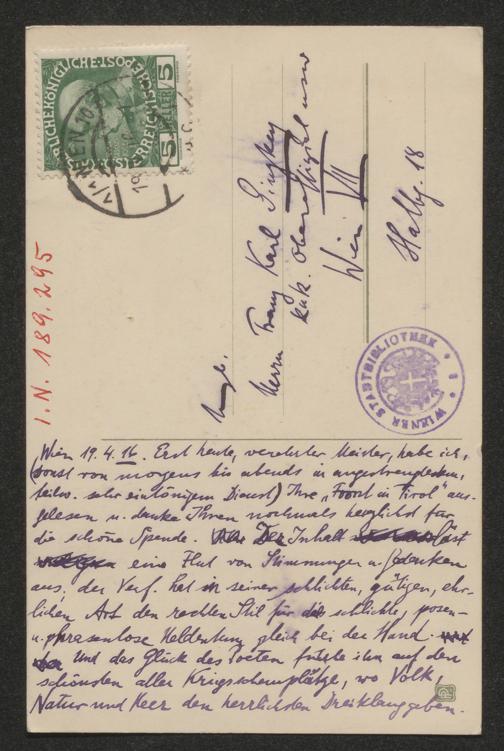 KÖNIGLICHE·ÖSTERREICHISCHE·POST
5 HELLER 5
1/1 WIEN 10
Herrn Franz Karl Ginzkey
k.u.k. Oberoffizial usw
Wien VII
Hallg. 18
I.N. 189.295
WIENER STADTBIBLIOTHEK
Wien 19.4.16. Erst heute, verehrter Meister, habe ich,
(sonst von morgens bis abends in angestrengtem,
teilw. sehr eintönigem Dienst) Ihre „Front in Tirol" aus-
gelesen u. danke Ihnen nochmals herzlichst für
die schöne Spende. Der Inhalt löst
eine Flut von Stimmungen u. Gedanken
aus, der Verf. hat in seiner schlichten, gütigen, ehr-
lichen Art den rechten Stil für die schlichte, posen-
u. phrasenlose Heldentum gleich bei der Hand.
Und das Glück des Poeten führte ihn auf den
schönsten aller Kriegsschauplätze, wo Volk,
Natur und Heer den herrlichsten Dreiklang geben.